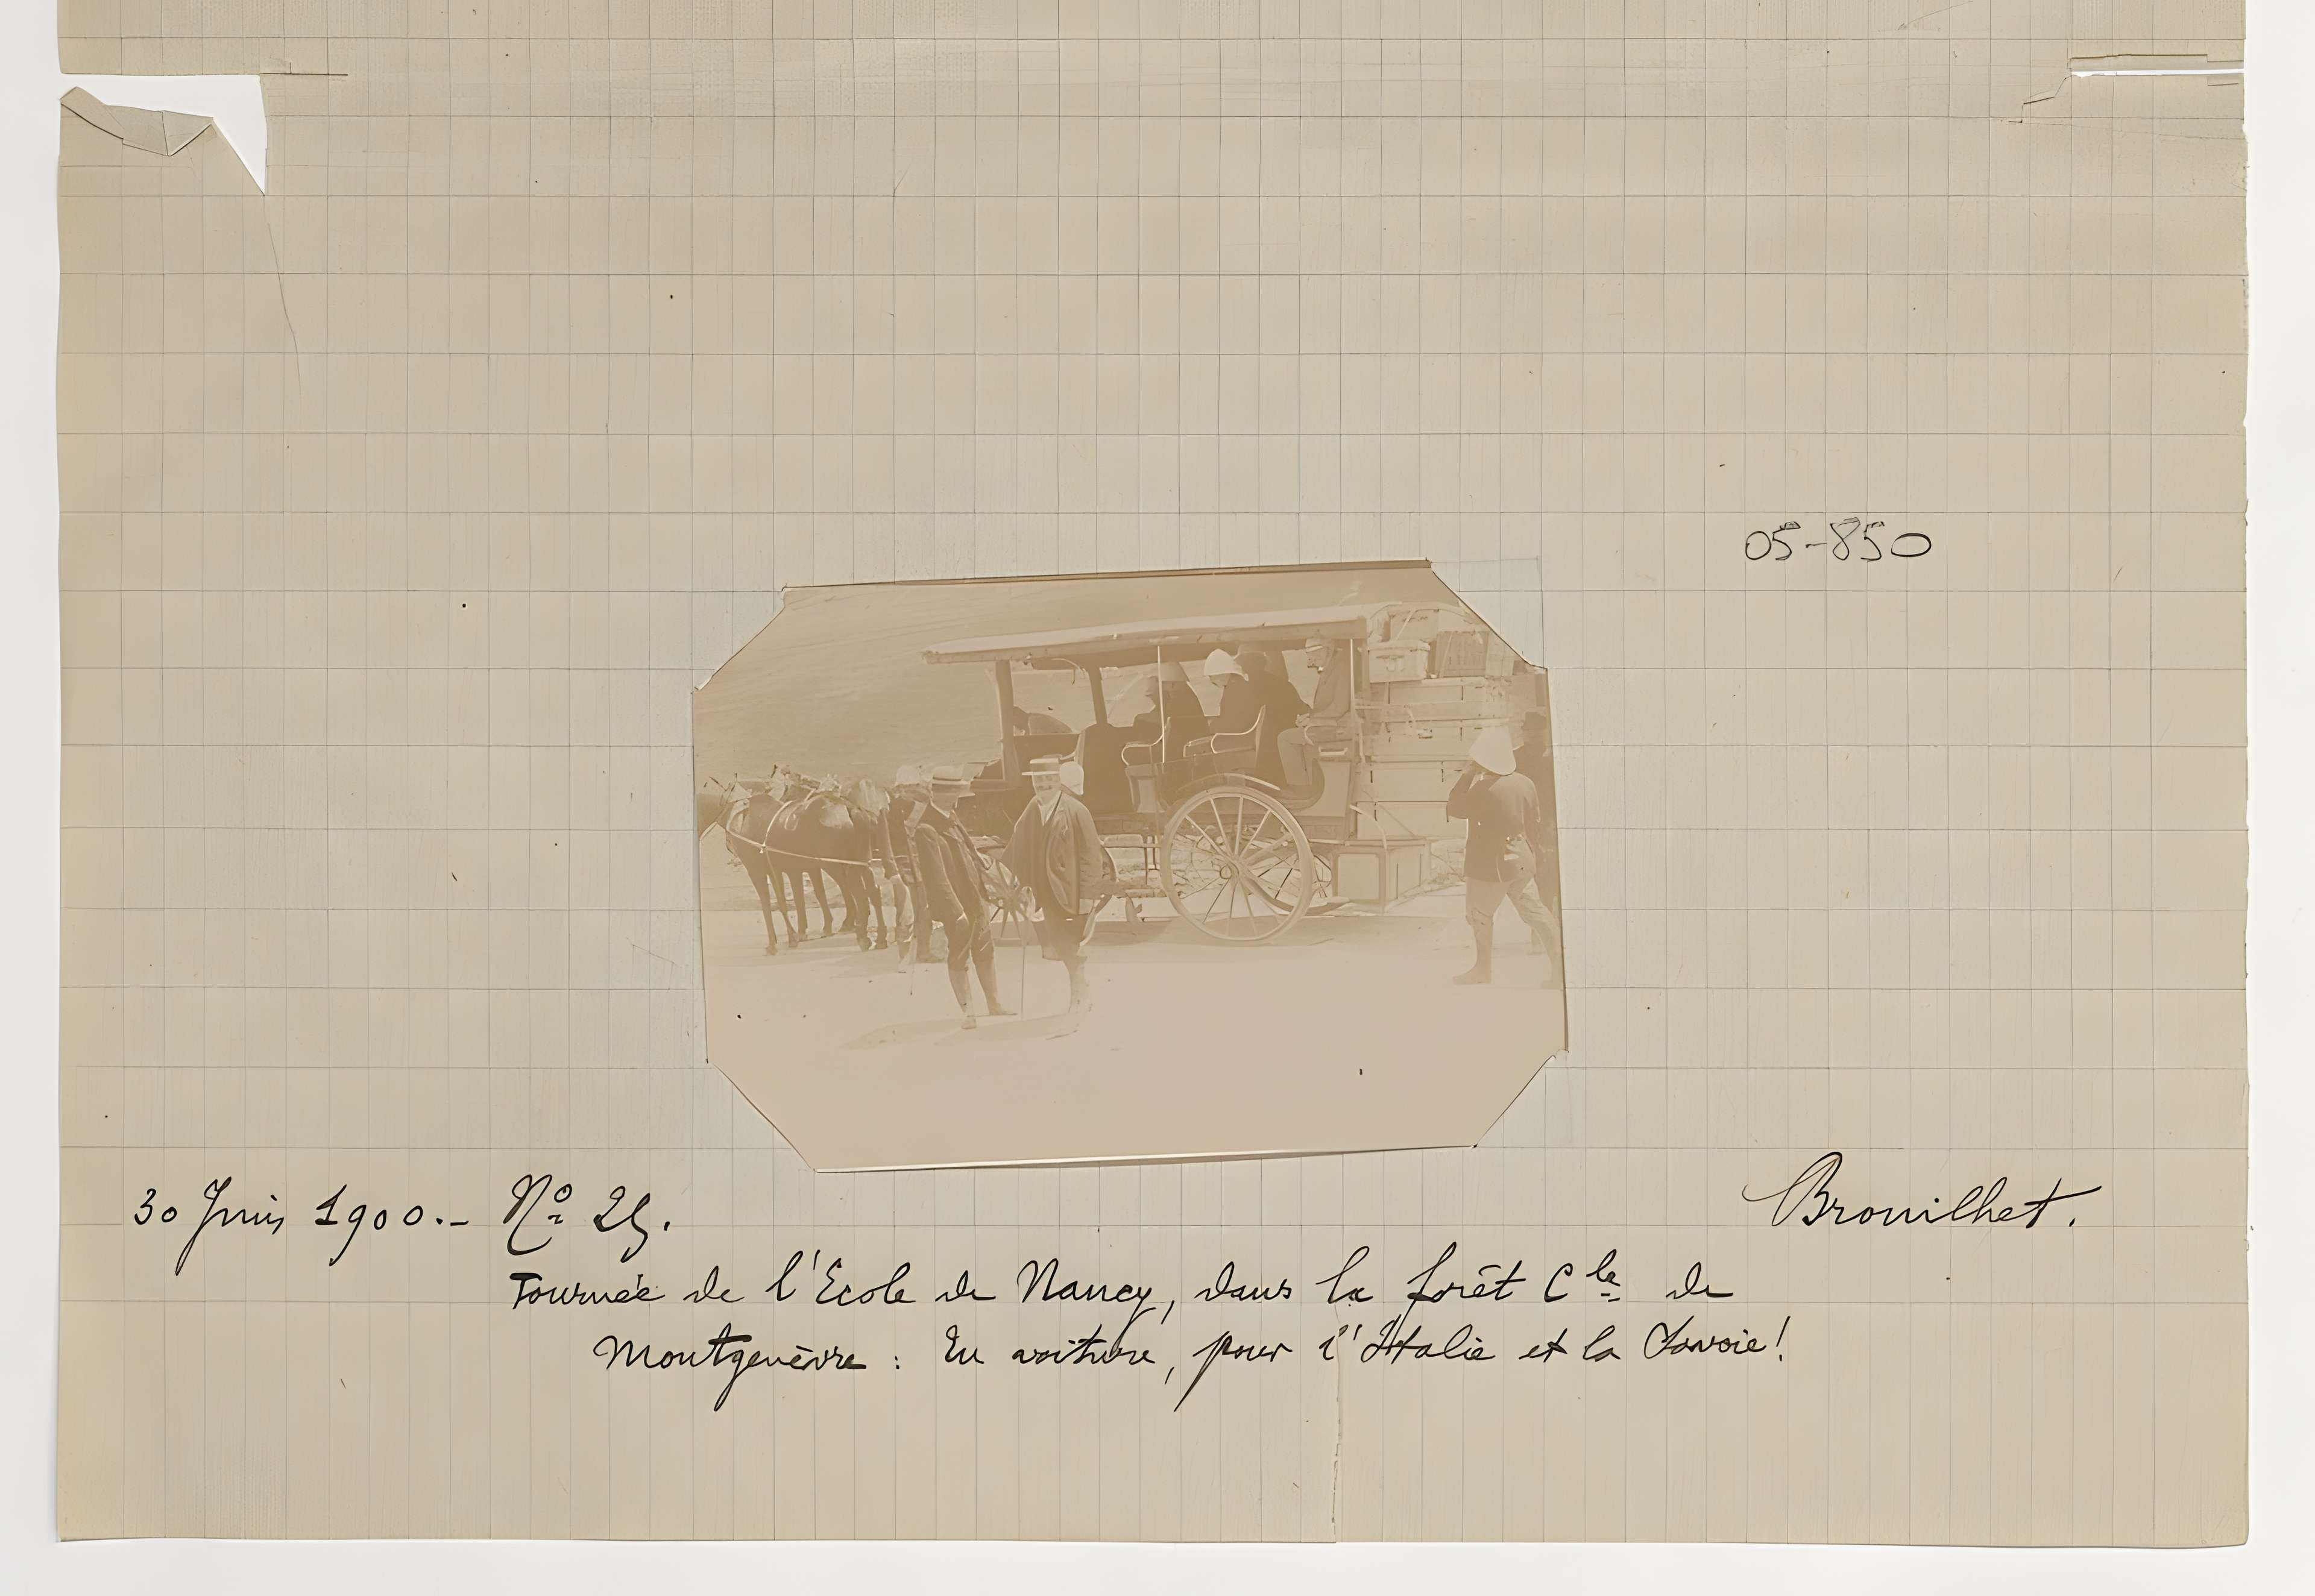 05-850
30 Juin 1900.- Nº 25. Brouilhet.
Tournée de l'Ecole de Nancy, dans la forêt Cle de
Montgenèvre : En voiture, pour l'Italie et la Savoie!